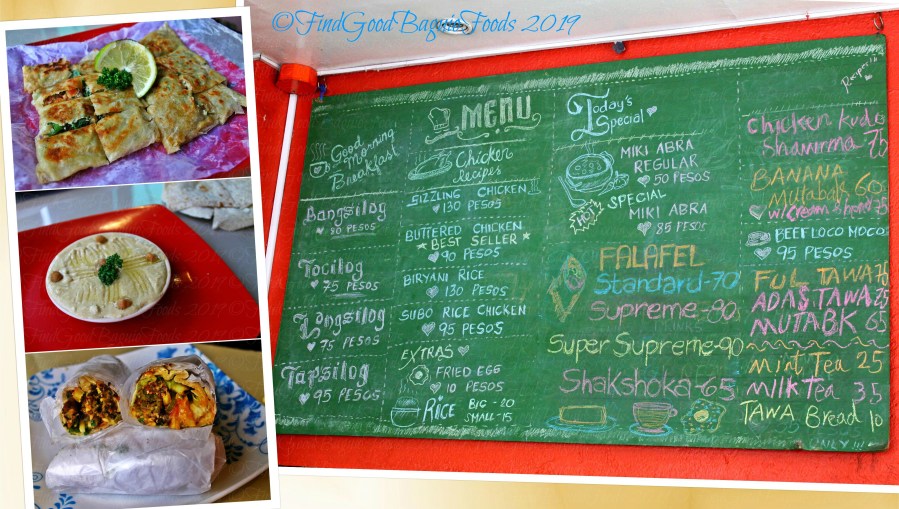 ©FindGoodBaguioFoods 2019
Good
Morning
Breakfast
Bangsilog
80 PESOS
Tocilog
75 PESOS
Longsilog
75 PESOS
Tapsilog
95 PESOS
MENU
Chicken
Recipes
SIZZLING CHICKEN
130 PESOS
BUTTERED CHICKEN
BEST SELLER
90 PESOS
BIRYANI RICE
130 PESOS
SUBO RICE CHICKEN
95 PESOS
EXTRAS
FRIED EGG
10 PESOS
RICE BIG -20
SMALL -15
Today's
Special
MIKI ABRA
REGULAR
50 PESOS
HOT
SPECIAL
MIKI ABRA
85 PESOS
FALAFEL
Standard-70
Supreme-80
Super Supreme-90
Shakshoka-65
Recipes
Chicken kudu
Shawirma 75
BANANA
Mutabak 60
w/Cream & bread 75
BEEFLOCO MOCO
95 PESOS
FUL TAWA 75
ADAS TAWA 75
MUTABK 65
Mint Tea 25
Milk Tea 35
TAWA Bread 10
ONLY!!!